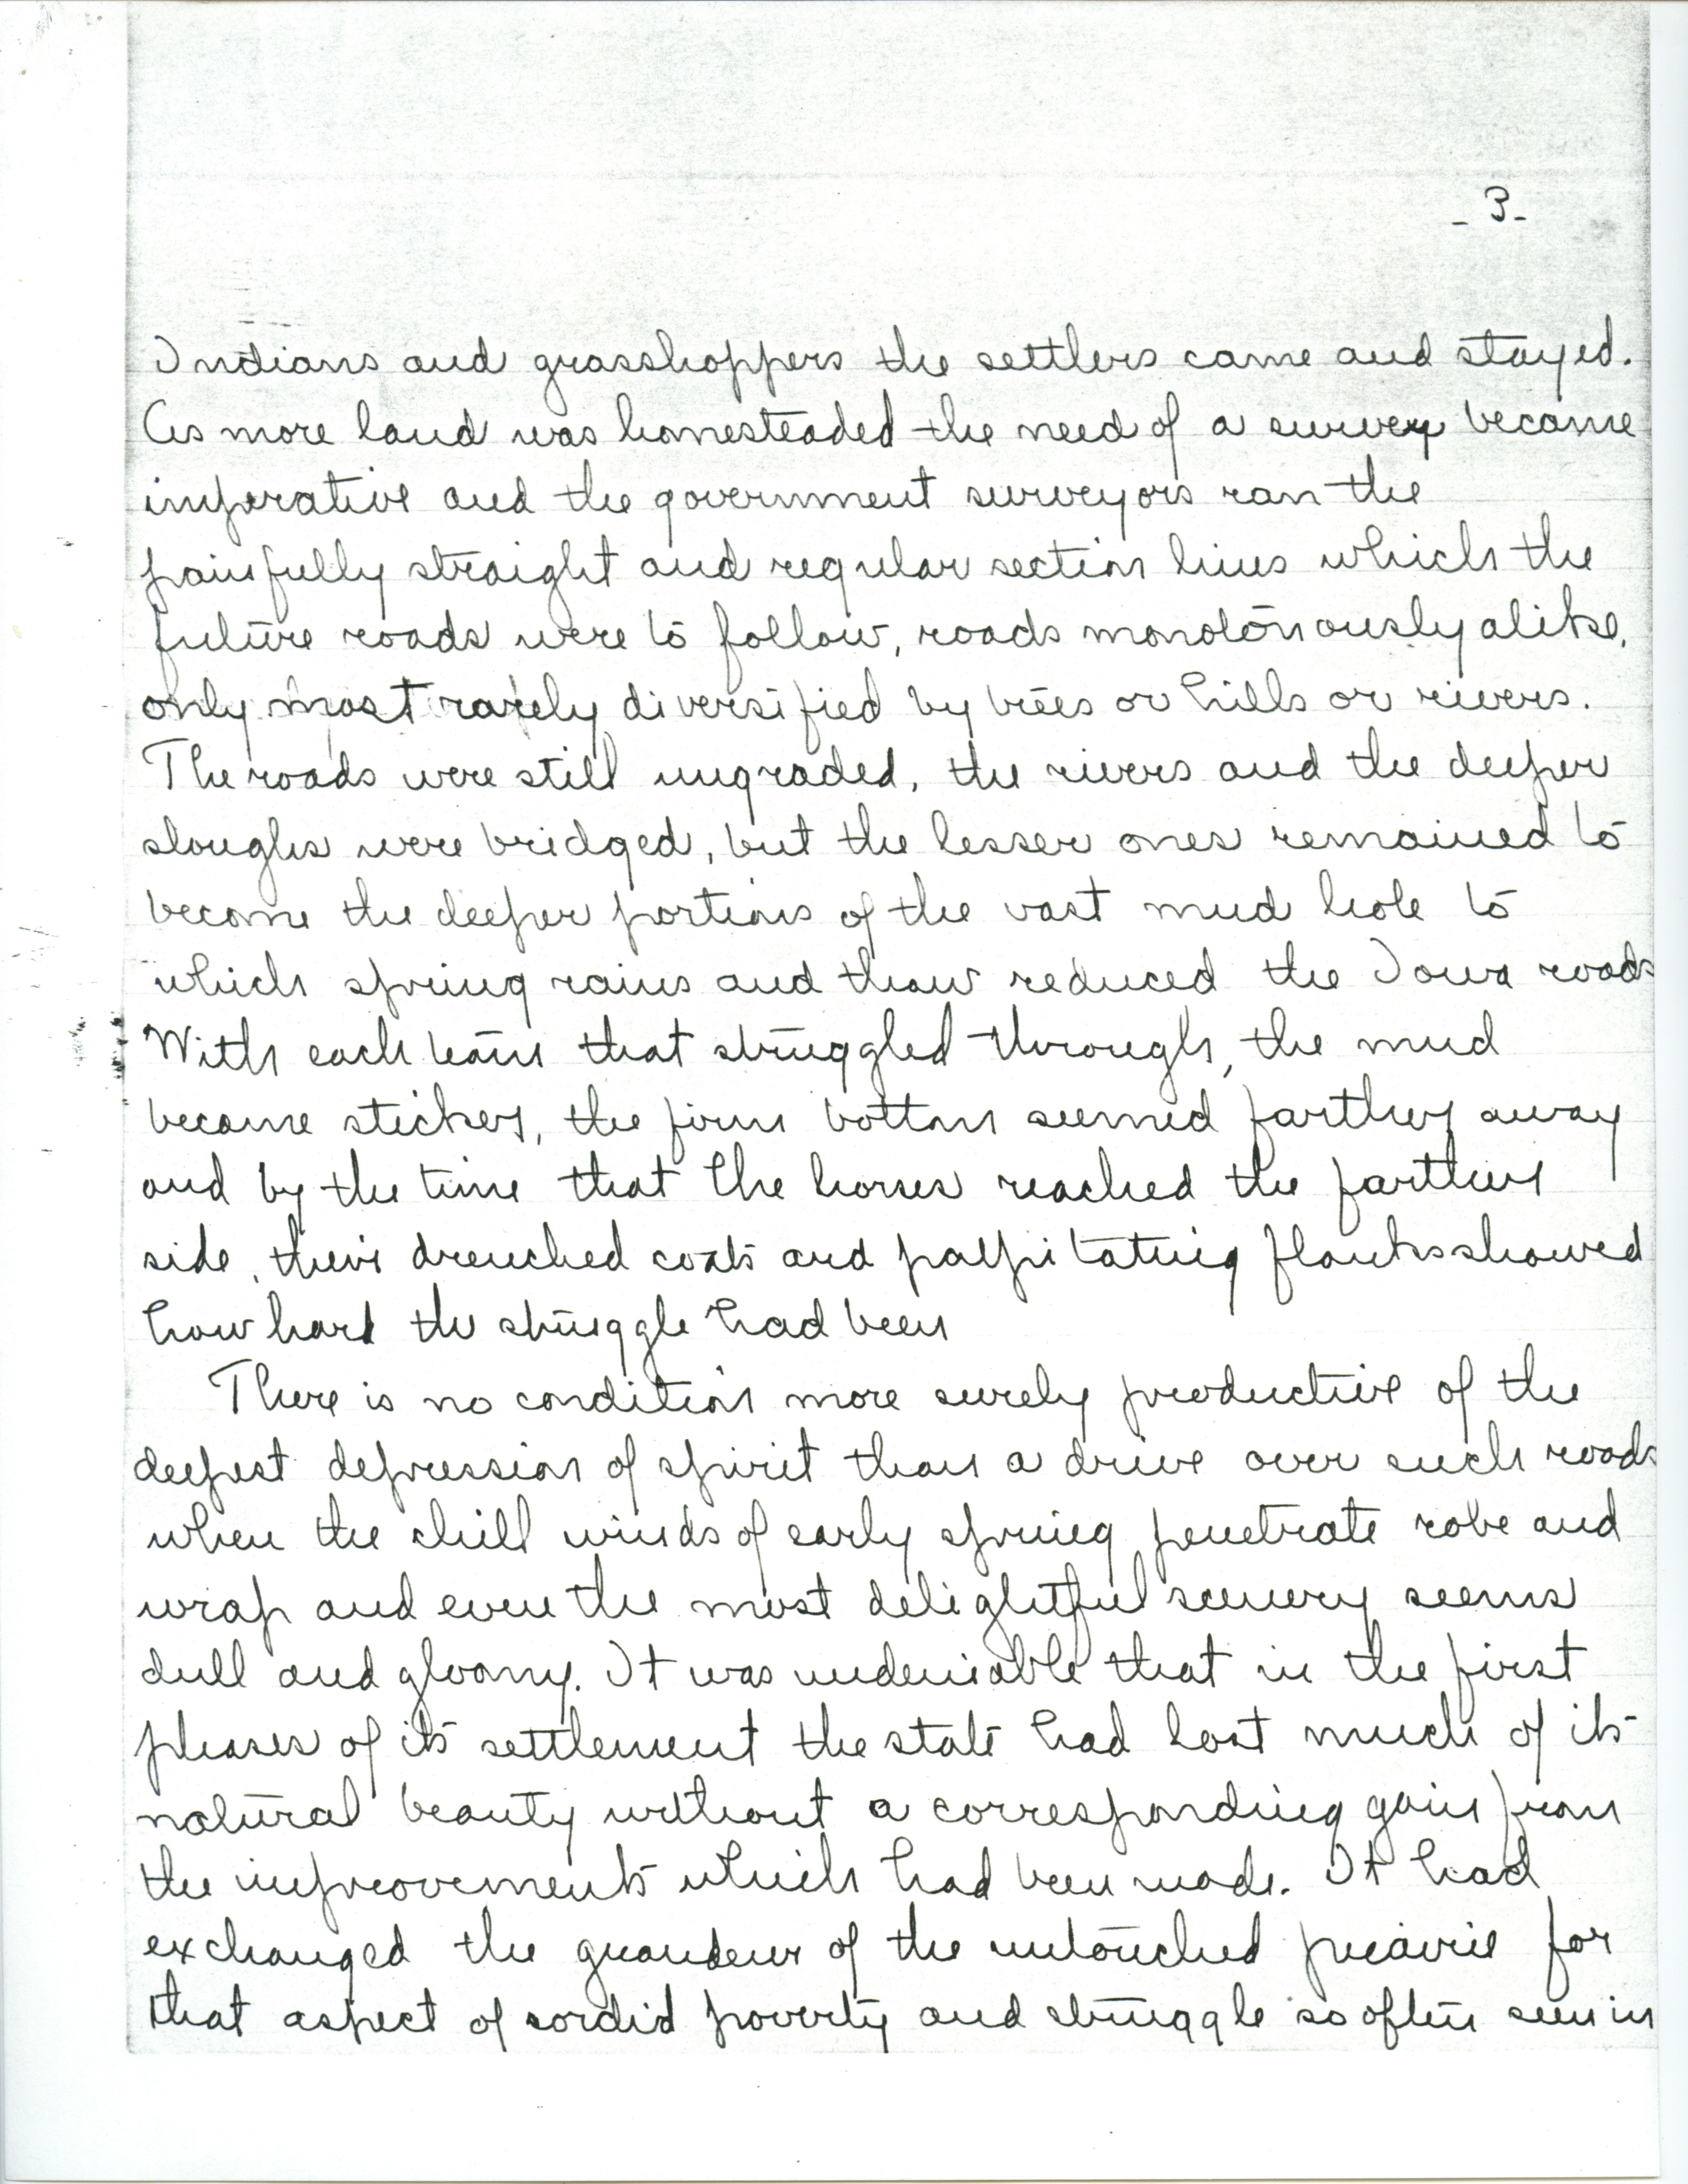 - 3 -
Indians and grasshoppers the settlers came and stayed.
As more land was homesteaded the need of a survey became
imperative and the government surveyors ran the
painfully straight and regular section lines which the
future roads were to follow, roads monotonously alike,
only most rarely diversified by trees or hills or rivers.
The roads were still ungraded, the rivers and the deeper
sloughs were bridged, but the lesser ones remained to
become the deeper portions of the vast mud hole to
which spring rains and thaw reduced the Iowa roads
With each team that struggled through, the mud
became stickey, the firm bottom seemed farther away
and by the time that the horses reached the farther
side, their drenched coats and palpitating flanks showed
how hard the struggle had been
There is no condition more surely productive of the
deepest depression of spirit than a drive over such roads
when the chill winds of early spring penetrate robe and
wrap and even the most delightful scenery seems
dull and gloomy. It was undeniable that in the first
phases of its settlement the state had lost much of its
natural beauty without a corresponding gain from
the improvements which had been made. It had
exchanged the grandeur of the untouched prairie for
that aspect of sordid poverty and struggle so often seen in